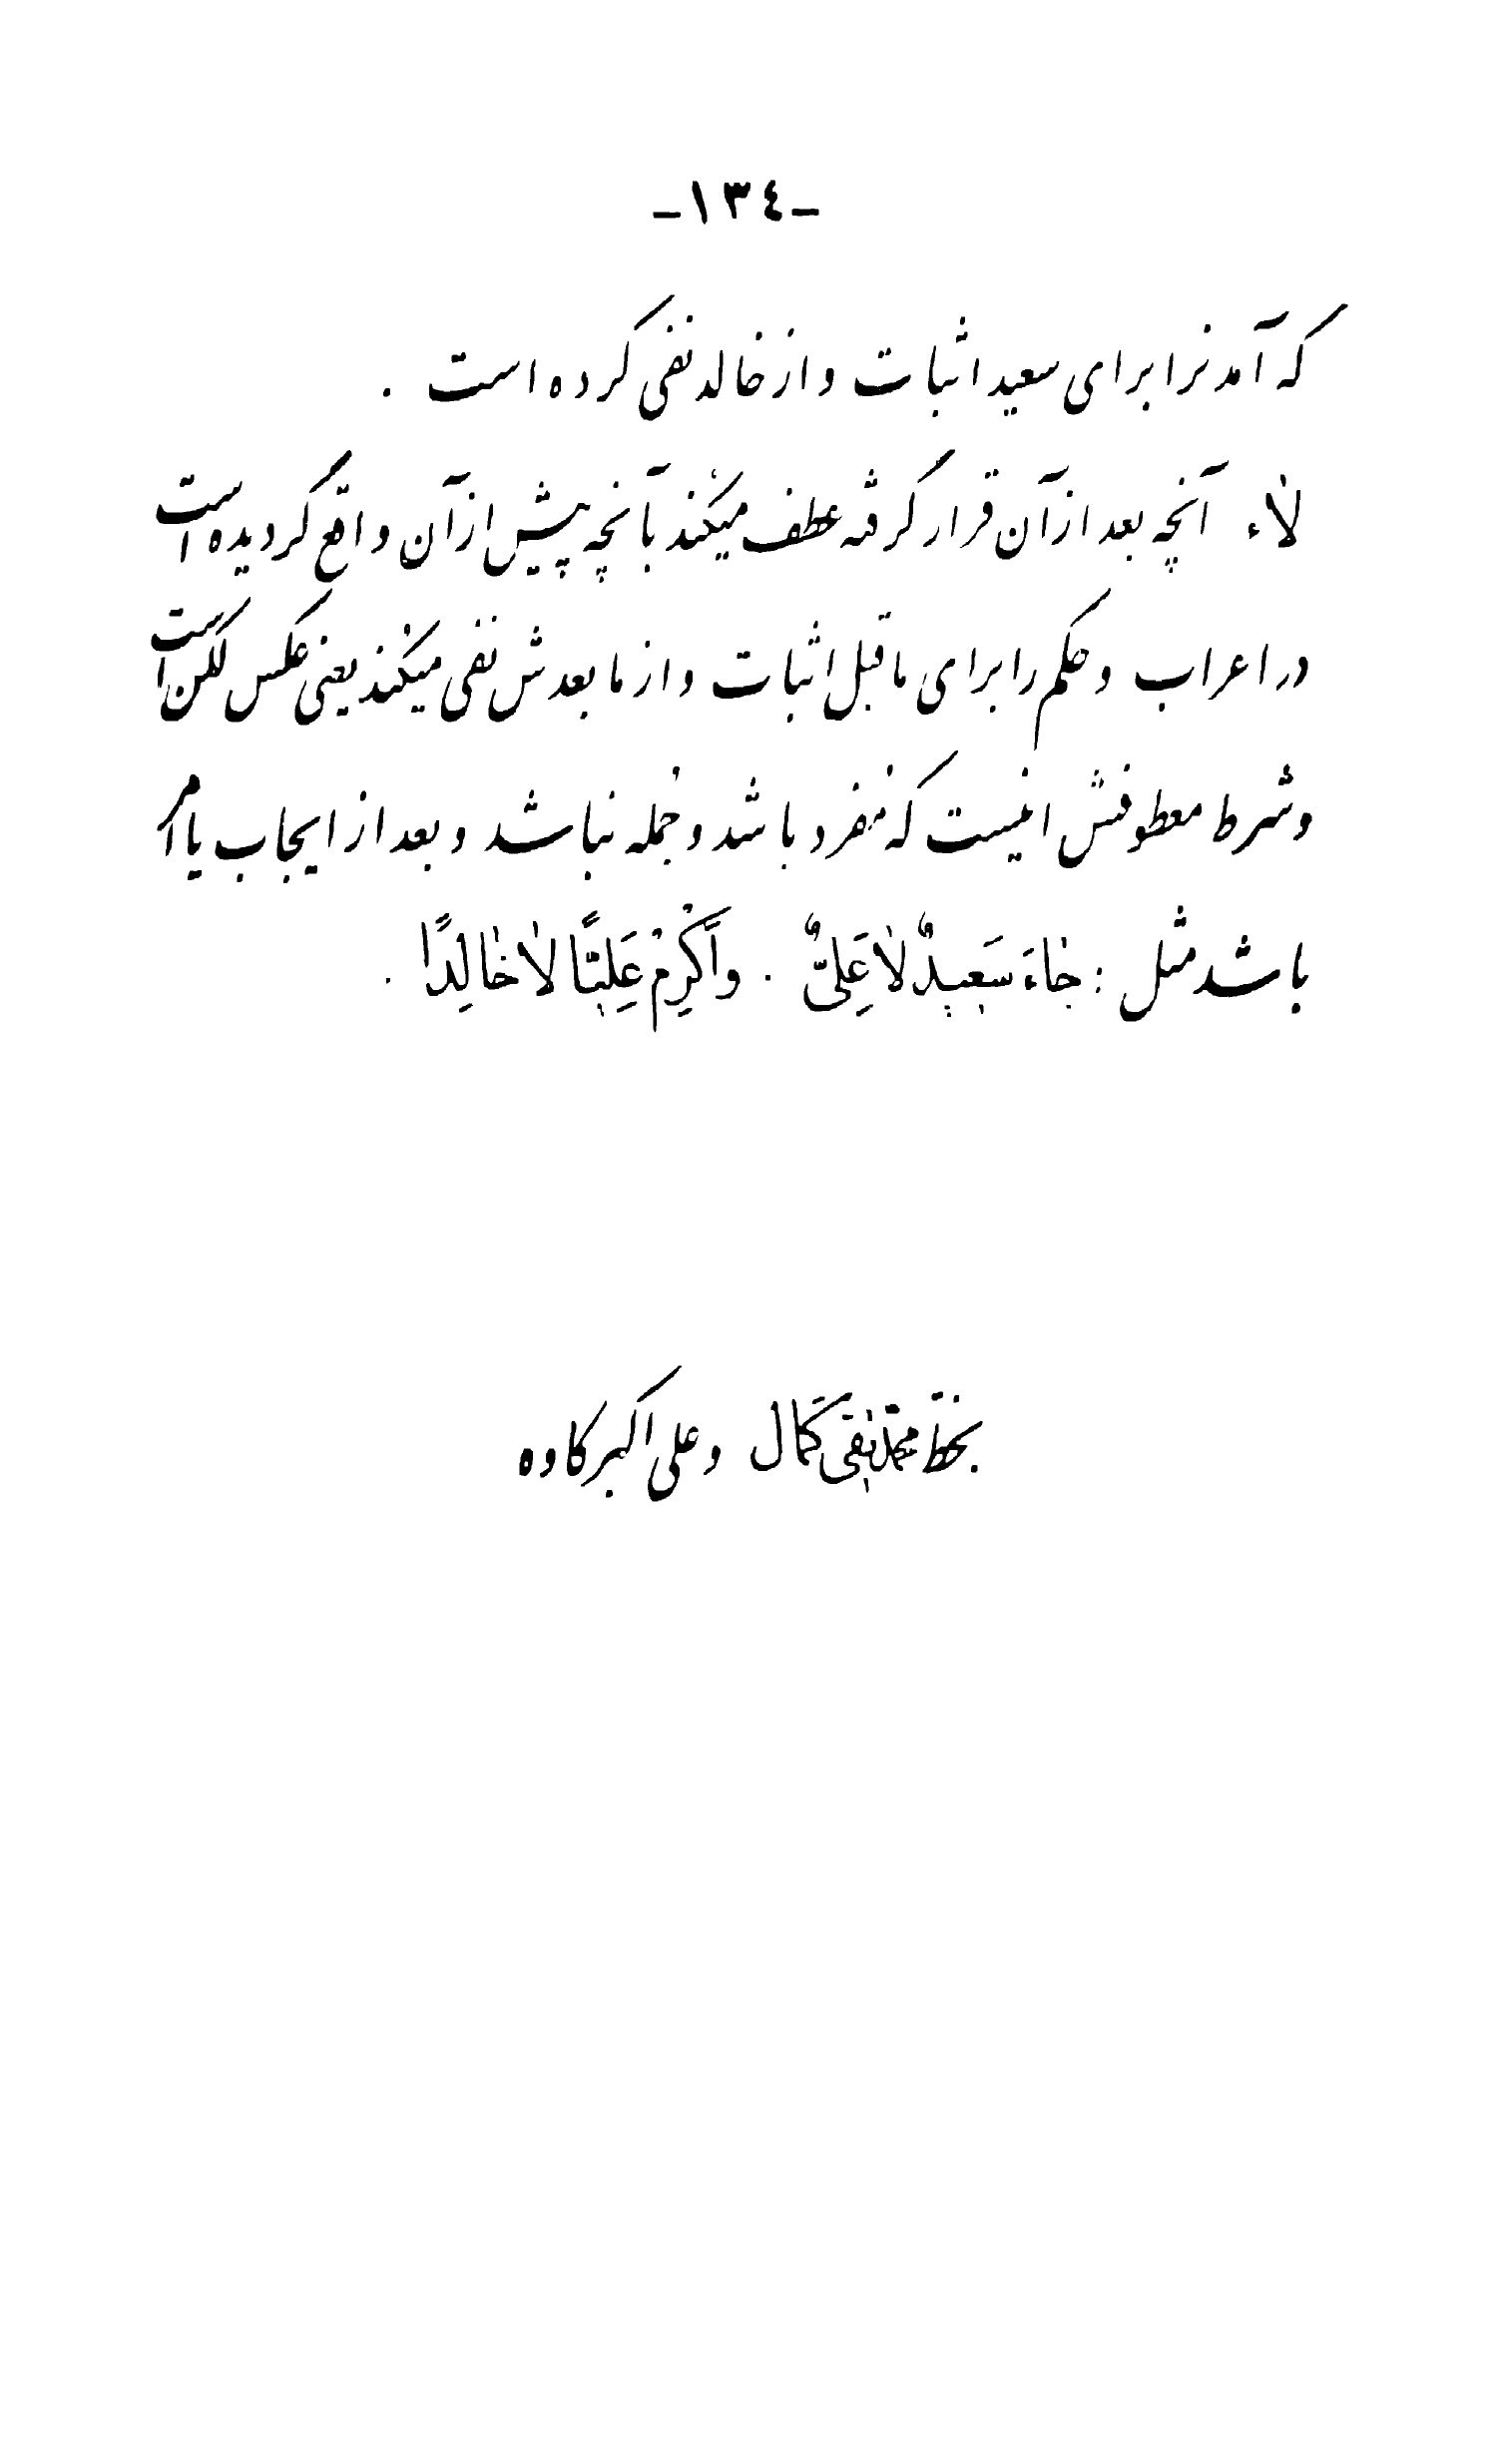 -١٣٤-
که آمدنرا برای سعید اثبات و از خالد نفی کرده است .
لاء آنچه بعد از آن قرار گرفته عطف میکند بآنچه پیش از آن واقع گردیده است
در اعراب و حکم را برای ما قبل اثبات و از ما بعدش نفی میکند یعنی عکس لکن است
و شرط معطوفش اینست که مفرد باشد و جمله نباشد و بعد از ایجاب یا امر
باشد مثل : جٰاءَ سَعیدٌ لاٰ عَلِیٌّ . وَ اَکْرِمْ عَلِیّاً لاٰ خٰالِداً .
بخط محمد تقی کمال و علی اکبر کاوه